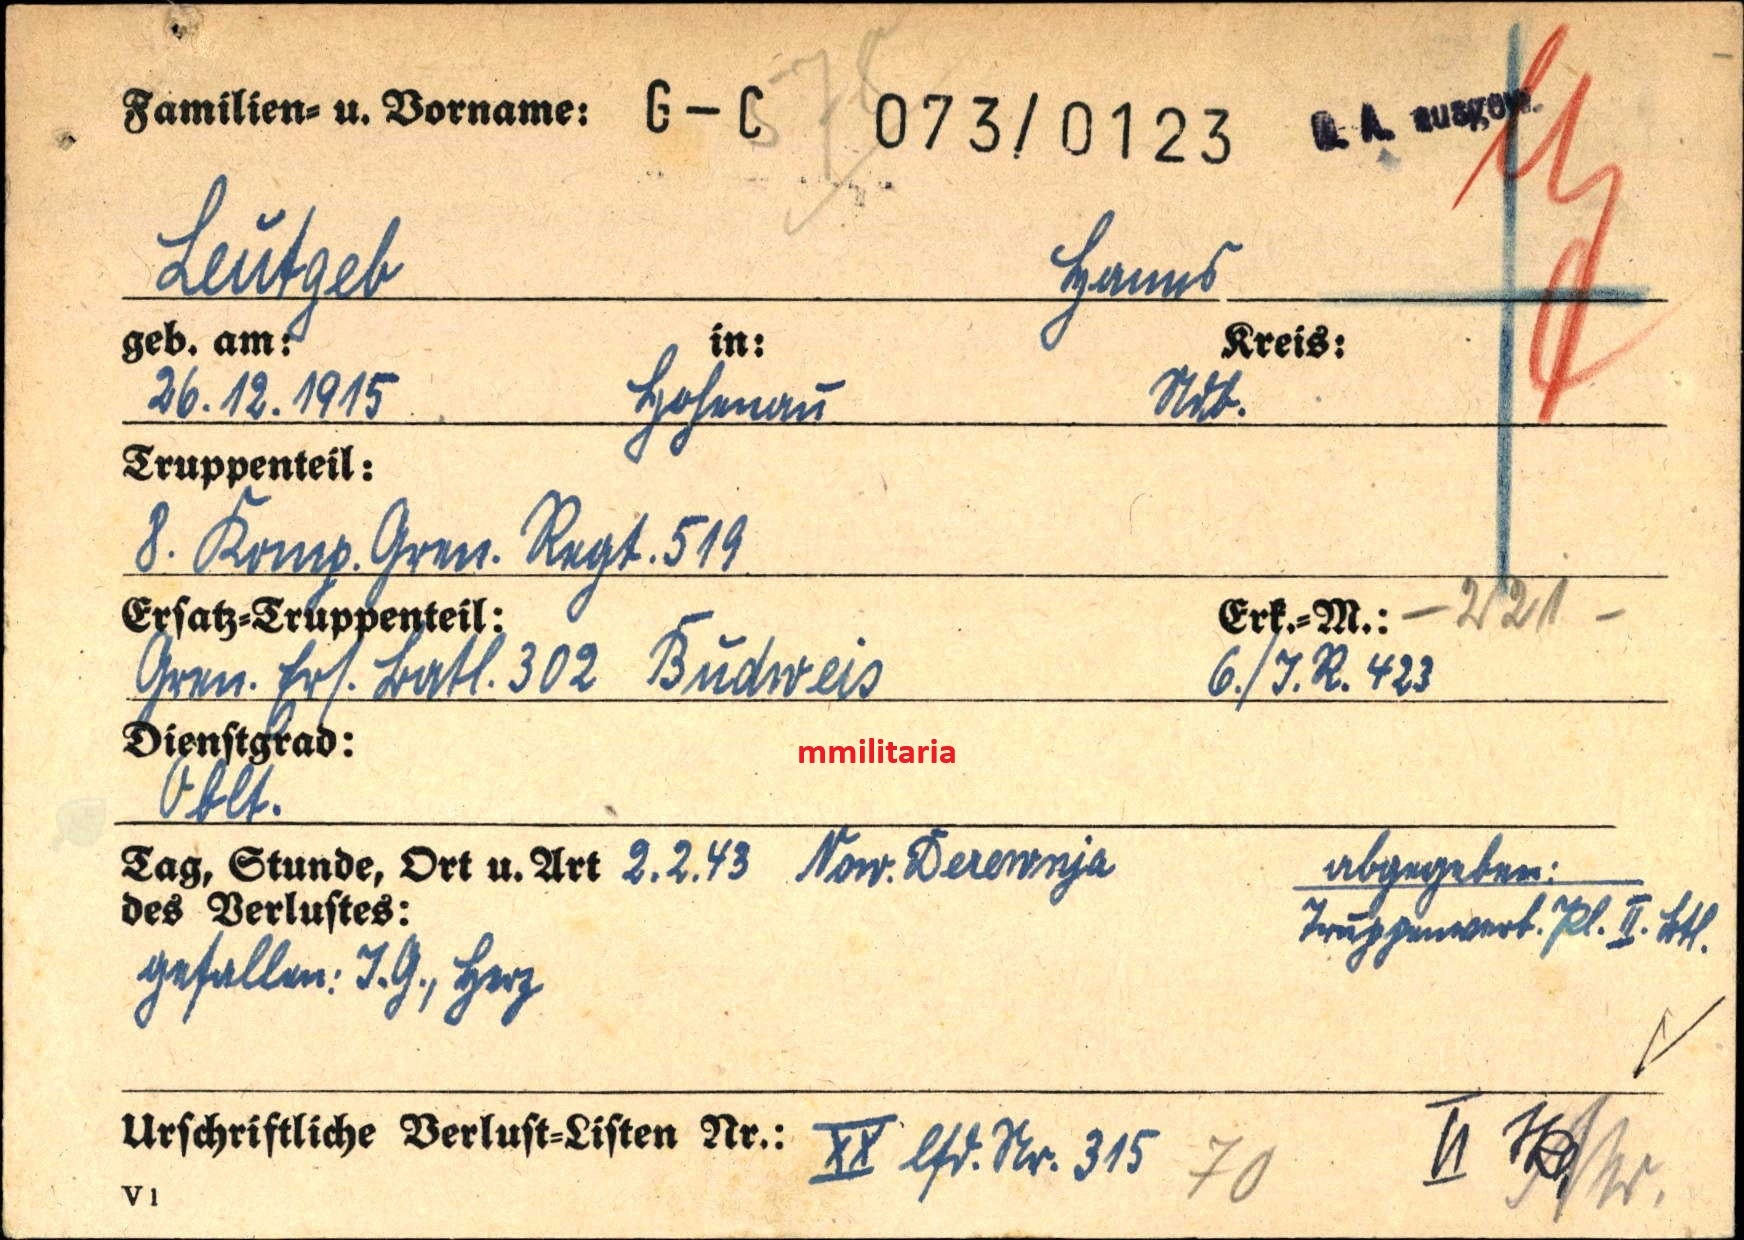 Familien- u. Vorname: G-C 073/0123 D. A. ausgew.
Leutgeb Hanns
geb. am: in: Kreis:
26.12.1915 Hohenau Ndb.
Truppenteil:
8. Komp. Gren. Regt. 519
Ersatz-Truppenteil: Erk.-M.: -221-
Gren. Ers. Batl. 302 Budweis 6./J.R. 423
Dienstgrad:
mmilitaria
Oblt.
Tag, Stunde, Ort u. Art 2.2.43 Now. Derewnja abgegeben:
des Verlustes: Truppenverb. Pl. II. Btl.
gefallen: I.G., Herz
Urschriftliche Verlust-Listen Nr.: XX lfd. Nr. 315 70 II
V1